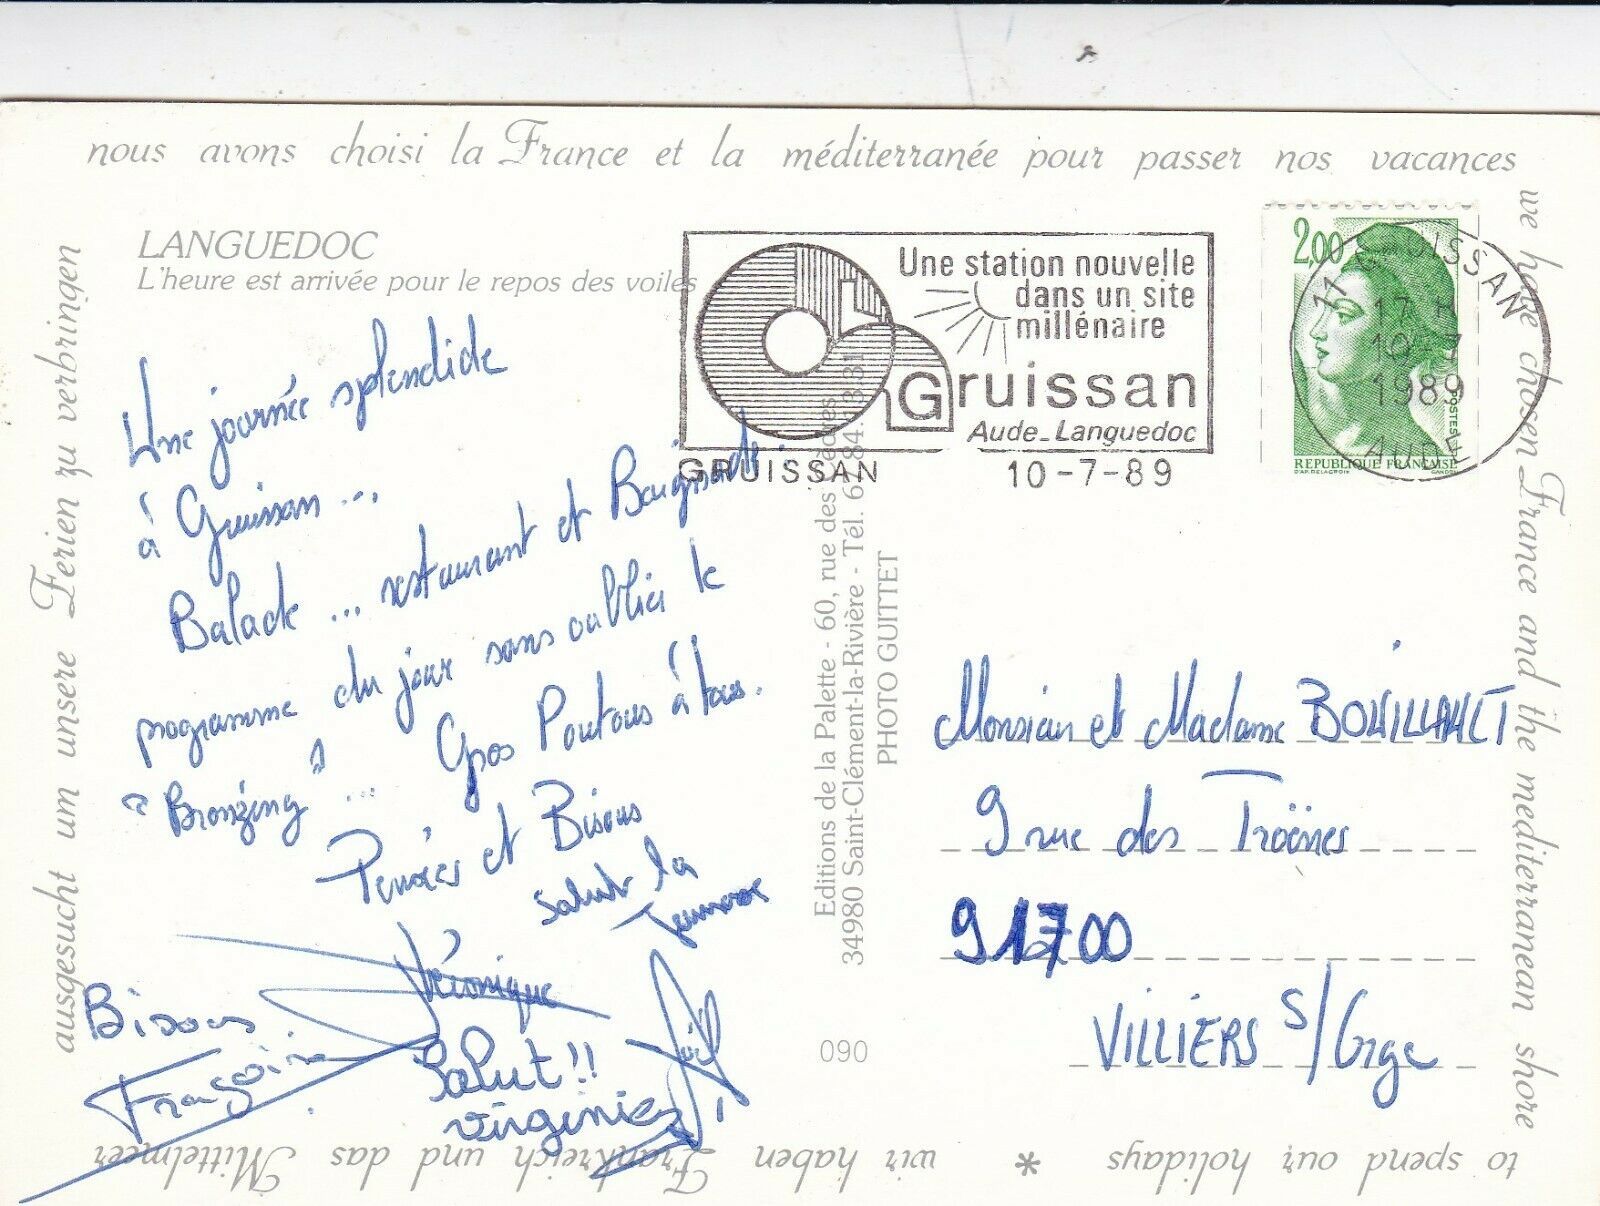 nous avons choisi la France et la méditerranée pour passer nos vacances
we have chosen France and the mediterranean shore
to spend our holidays * wir haben Frankreich und das Mittelmeer
ausgesucht um unsere Ferien zu verbringen
LANGUEDOC
L'heure est arrivée pour le repos des voiles
Une journée splendide
à Gruissan ...
Balade ... restaurant et Baignade.
programme du jour sans oublier le
"Bronzing" ... Gros Poutous à tous.
Pensées et Bisous
Salut la
Jeunesse
Véronique
Joël
Bisous
Françoise
Salut!!
Virginie
Editions de la Palette - 60, rue des Cèdres
34980 Saint-Clément-la-Rivière - Tél. 67.84.13.31
PHOTO GUITTET
090
Une station nouvelle
dans un site
millénaire
Gruissan
Aude_Languedoc
GRUISSAN 10-7-89
2,00
POSTES
REPUBLIQUE FRANÇAISE
D'AP. DELACROIX GANDON
11 GRUISSAN
17 H
10-7
1989
AUDE
Monsieur et Madame BOUILLAULT
9 rue des Troënes
91700
VILLIERS S/Orge